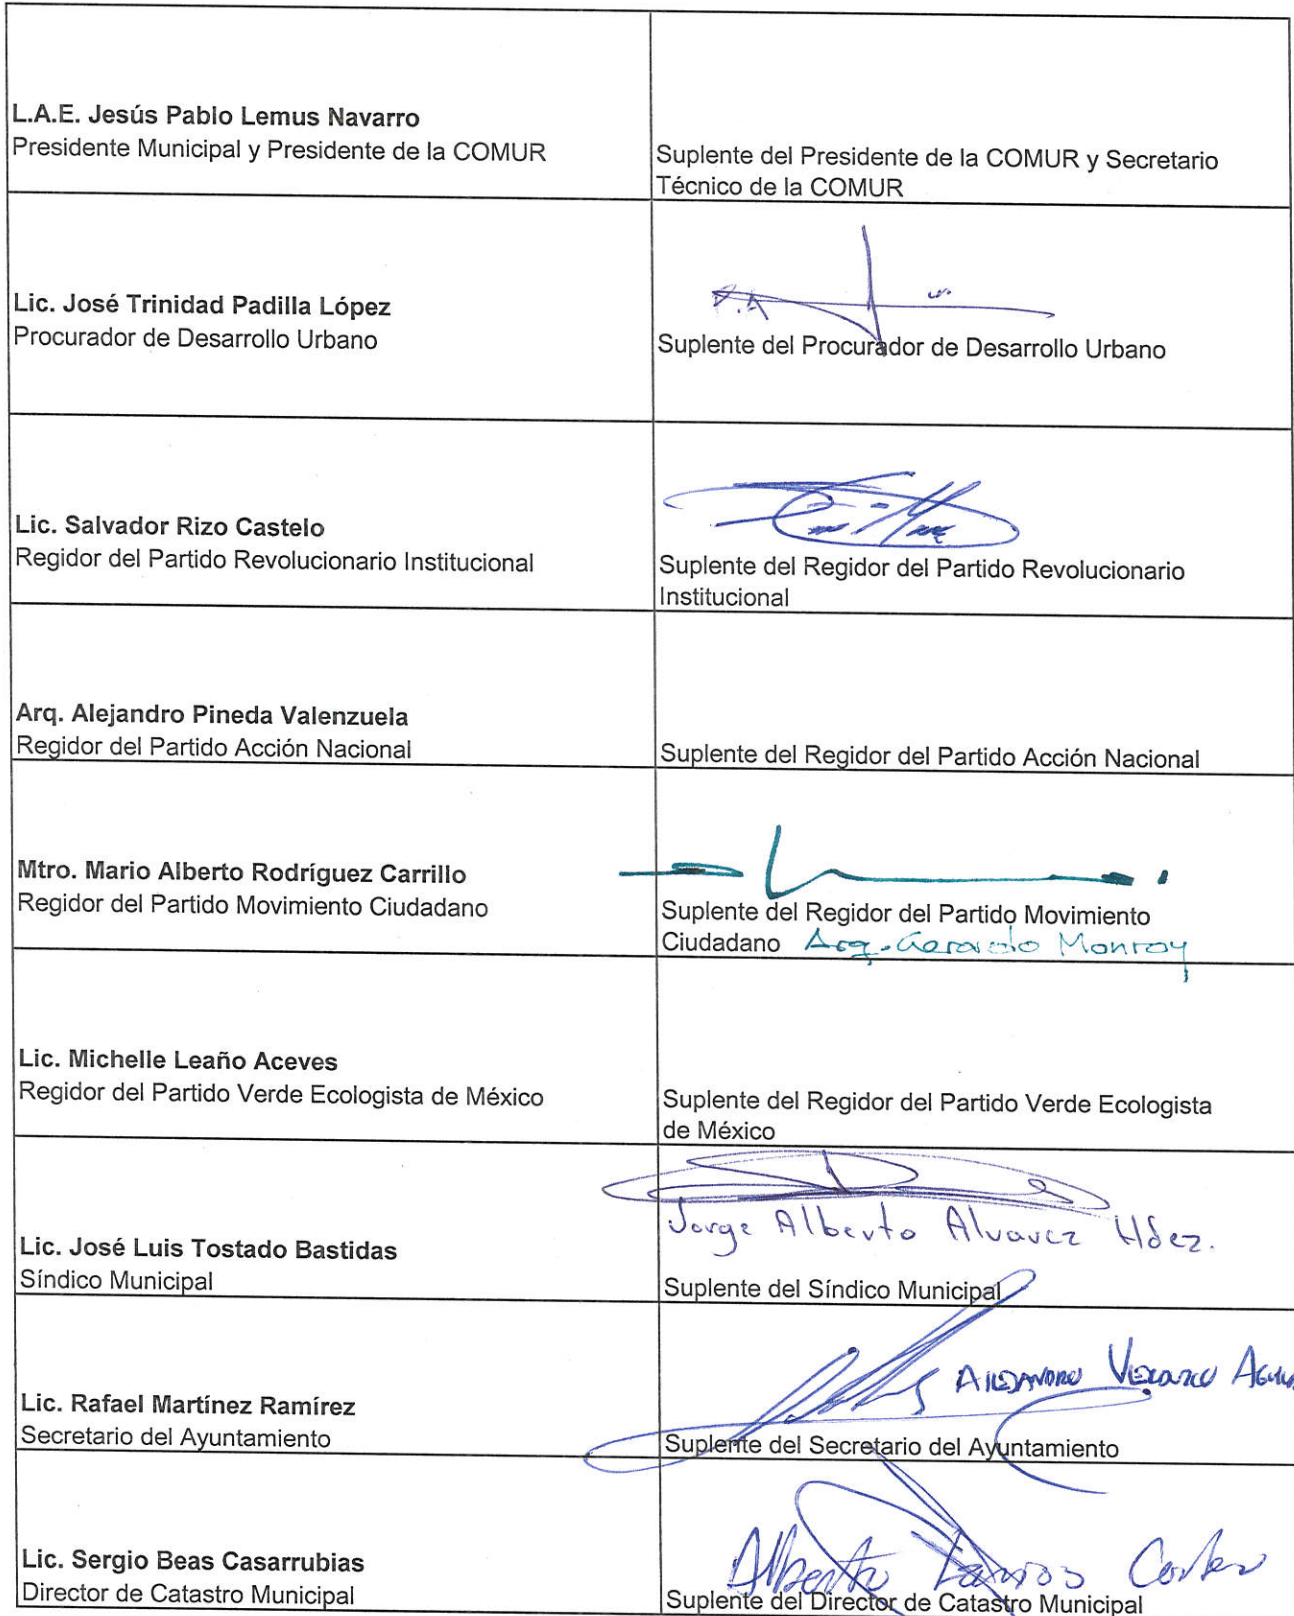 L.A.E. Jesús Pablo Lemus Navarro
Presidente Municipal y Presidente de la COMUR
Suplente del Presidente de la COMUR y Secretario
Técnico de la COMUR
Lic. José Trinidad Padilla López
Procurador de Desarrollo Urbano
P.A
Suplente del Procurador de Desarrollo Urbano
Lic. Salvador Rizo Castelo
Regidor del Partido Revolucionario Institucional
Suplente del Regidor del Partido Revolucionario
Institucional
Arq. Alejandro Pineda Valenzuela
Regidor del Partido Acción Nacional
Suplente del Regidor del Partido Acción Nacional
Mtro. Mario Alberto Rodríguez Carrillo
Regidor del Partido Movimiento Ciudadano
Suplente del Regidor del Partido Movimiento
Ciudadano Arq. Gerardo Monroy
Lic. Michelle Leaño Aceves
Regidor del Partido Verde Ecologista de México
Suplente del Regidor del Partido Verde Ecologista
de México
Lic. José Luis Tostado Bastidas
Síndico Municipal
Jorge Alberto Alvarez Hdez.
Suplente del Síndico Municipal
Lic. Rafael Martínez Ramírez
Secretario del Ayuntamiento
ALEJANDRO
Suplente del Secretario del Ayuntamiento
Lic. Sergio Beas Casarrubias
Director de Catastro Municipal
Alberto
Suplente del Director de Catastro Municipal